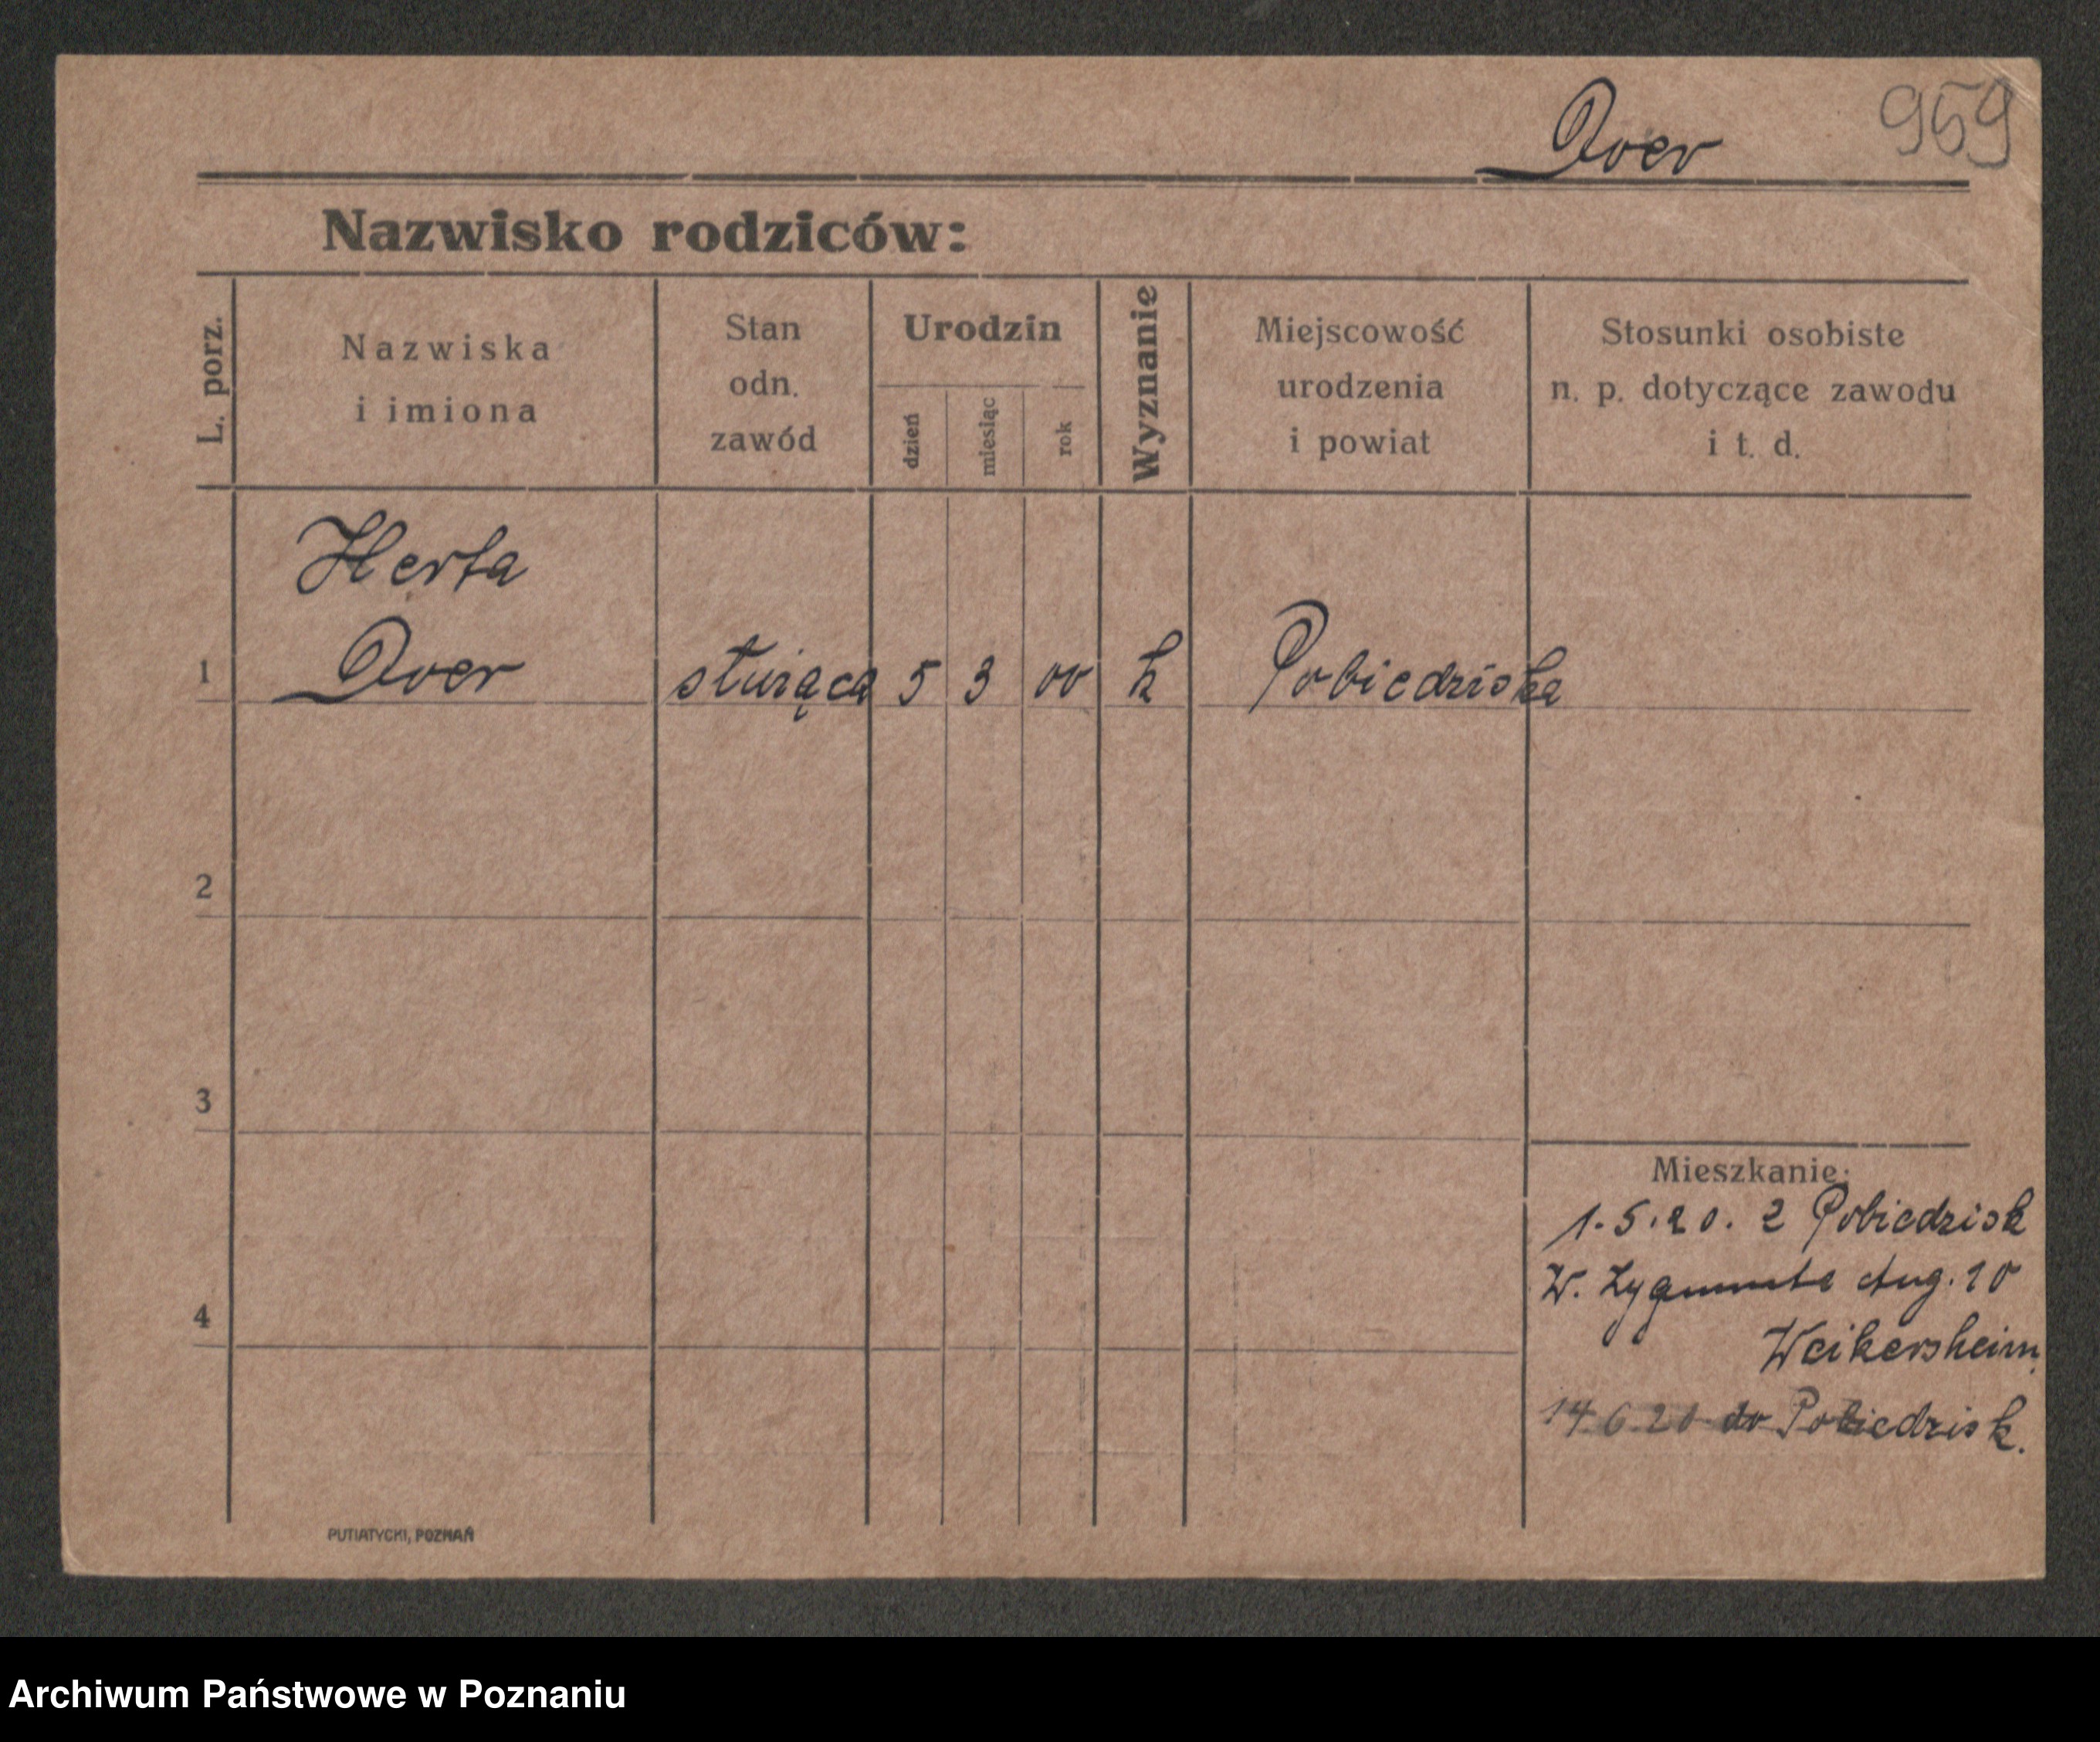 Doer 959
Nazwisko rodziców:
L. porz.
Nazwiska
i imiona
Stan
odn.
zawód
Urodzin
dzień
miesiąc
rok
Wyznanie
Miejscowość
urodzenia
i powiat
Stosunki osobiste
n. p. dotyczące zawodu
i t. d.
Herta
1 Doer służąca 5 3 00 k Pobiedziska
2
3
Mieszkanie:
1.5.20. z Pobiedzisk
W. Zygmunta Aug. 10
4
Weikersheim
14 6 20 do Pobiedzisk.
PUTIATYCKI, POZNAŃ
Archiwum Państwowe w Poznaniu